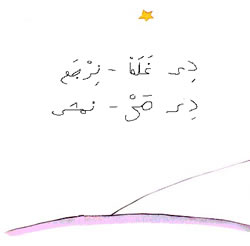 دِير غَلَطْ - نِرْجَع
دِير صَحّْ - نمشى